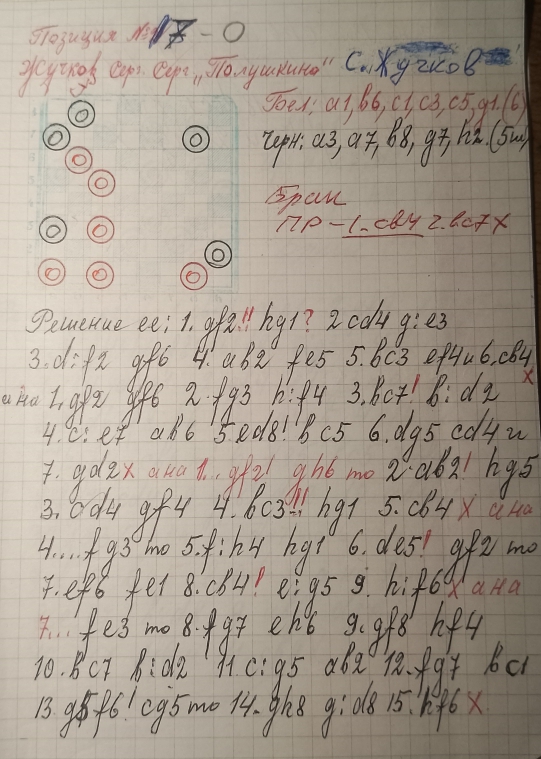 Позиция №17 - О
Жучков Серг. Серг „Полушкино" С. Жучков
Бел: а1, в6, с1, с3, с5, g1. (6)
Черн: а3, а7, в8, g7, h2. (5ш)
ПР - 1. св4 2. вс7 х
Решение ее: 1. gf2!! hg1? 2 cd4 g:e3
3. d:f2 gf6 4. ав2 fe5 5. вс3 ef4 и 6. св4 х
а на 1. gf2 gf6 2. fg3 h:f4 3. вс7! в:d2
4. с:е7 ав6 5 ed8! вс5 6. dg5 cd4 и
7. gd2 х а на 1... gf2! gh6 то 2. ав2! hg5
3. cd4 gf4 4. вс3!! hg1 5. св4 х а на
4.... fg3 то 5. f:h4 hg1 6. de5! gf2 то
7. ef6 fe1 8. св4! e:g5 9. h:f6 х а на
7... fe3 то 8. fg7 eh6 9. gf8 hf4
10. вс7 в:d2 11. с:g5 ав2 12. fg7 вс1
13. gf6! cg5 то 14. gh8 g:d8 15. hf6 х